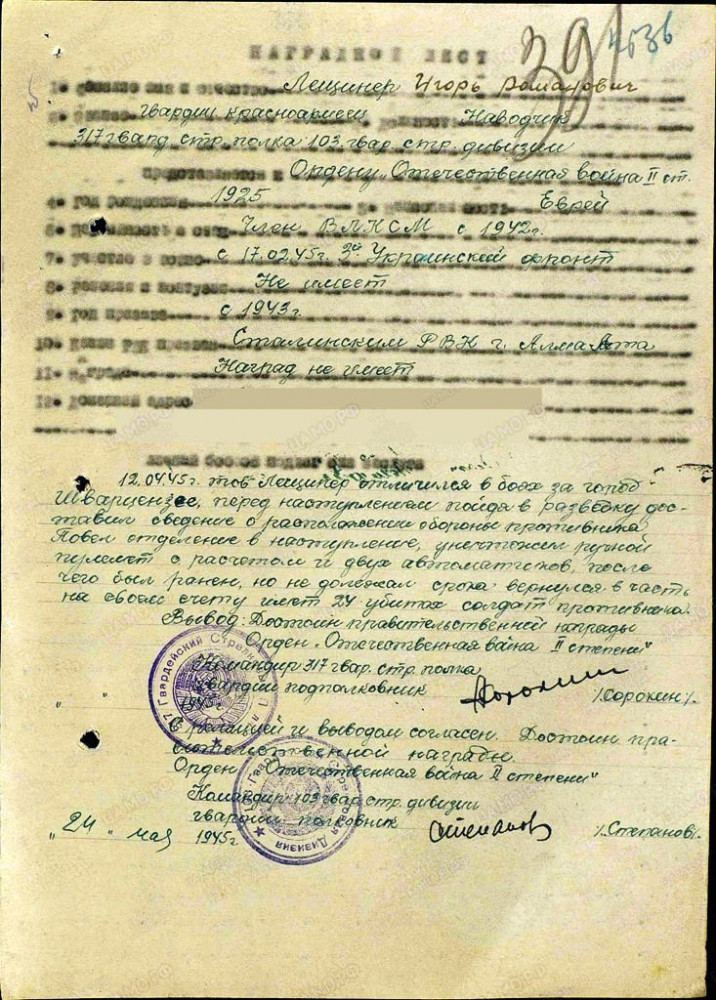 НАГРАДНОЙ ЛИСТ
391 4536
1. Фамилия имя и отчество Лещинер Игорь Романович
2. Звание гвардии красноармеец Наводчик
317 гвард. стр. полка 103 гвар. стр. дивизии
представляется к Ордену „Отечественная война II ст.
4. Год рождения 1925 Еврей
6. Член ВЛКСМ с 1942г.
7. Участие в с 17.02.45г. 3й Украинский фронт
8. ранения и контузии Не имеет
9. Год призыва с 1943г.
10. Каким РВК призван Сталинским РВК г. Алма Ата
11. Наград не имеет
12. Домашний адрес
12.04.45г. тов Лещинер отличился в боях за город
Шварцензее, перед наступлением пойдя в разведку дос-
тавил сведение о расположении обороны противника
Повел отделение в наступление, уничтожил ручной
пулемет с расчетом и двух автоматчиков, после
чего был ранен, но не долежал срока вернулся в часть
на своем счету имет 24 убитых солдат противника.
Вывод: Достоин правительственной награды
Орден „Отечественная война II степени"
Командир 317 гвар. стр. полка
гвардии подполковник /Сорокин/.
" " 1945г
С реляцией и выводом согласен. Достоин пра-
вительственной награды.
Орден „Отечественная война II степени"
Командир 103 гвар. стр. дивизии
гвардии полковник /Степанов/.
„24" мая 1945г